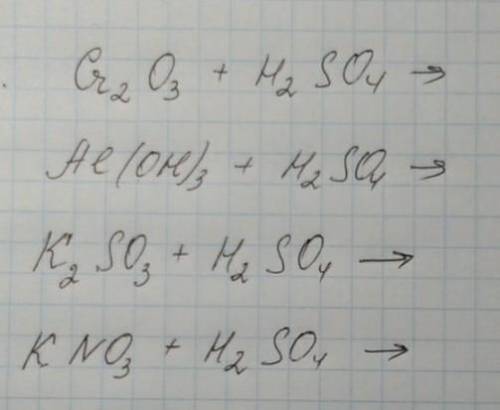 Cr₂O₃ + H₂SO₄ →
Al(OH)₃ + H₂SO₄ →
K₂SO₃ + H₂SO₄ →
KNO₃ + H₂SO₄ →